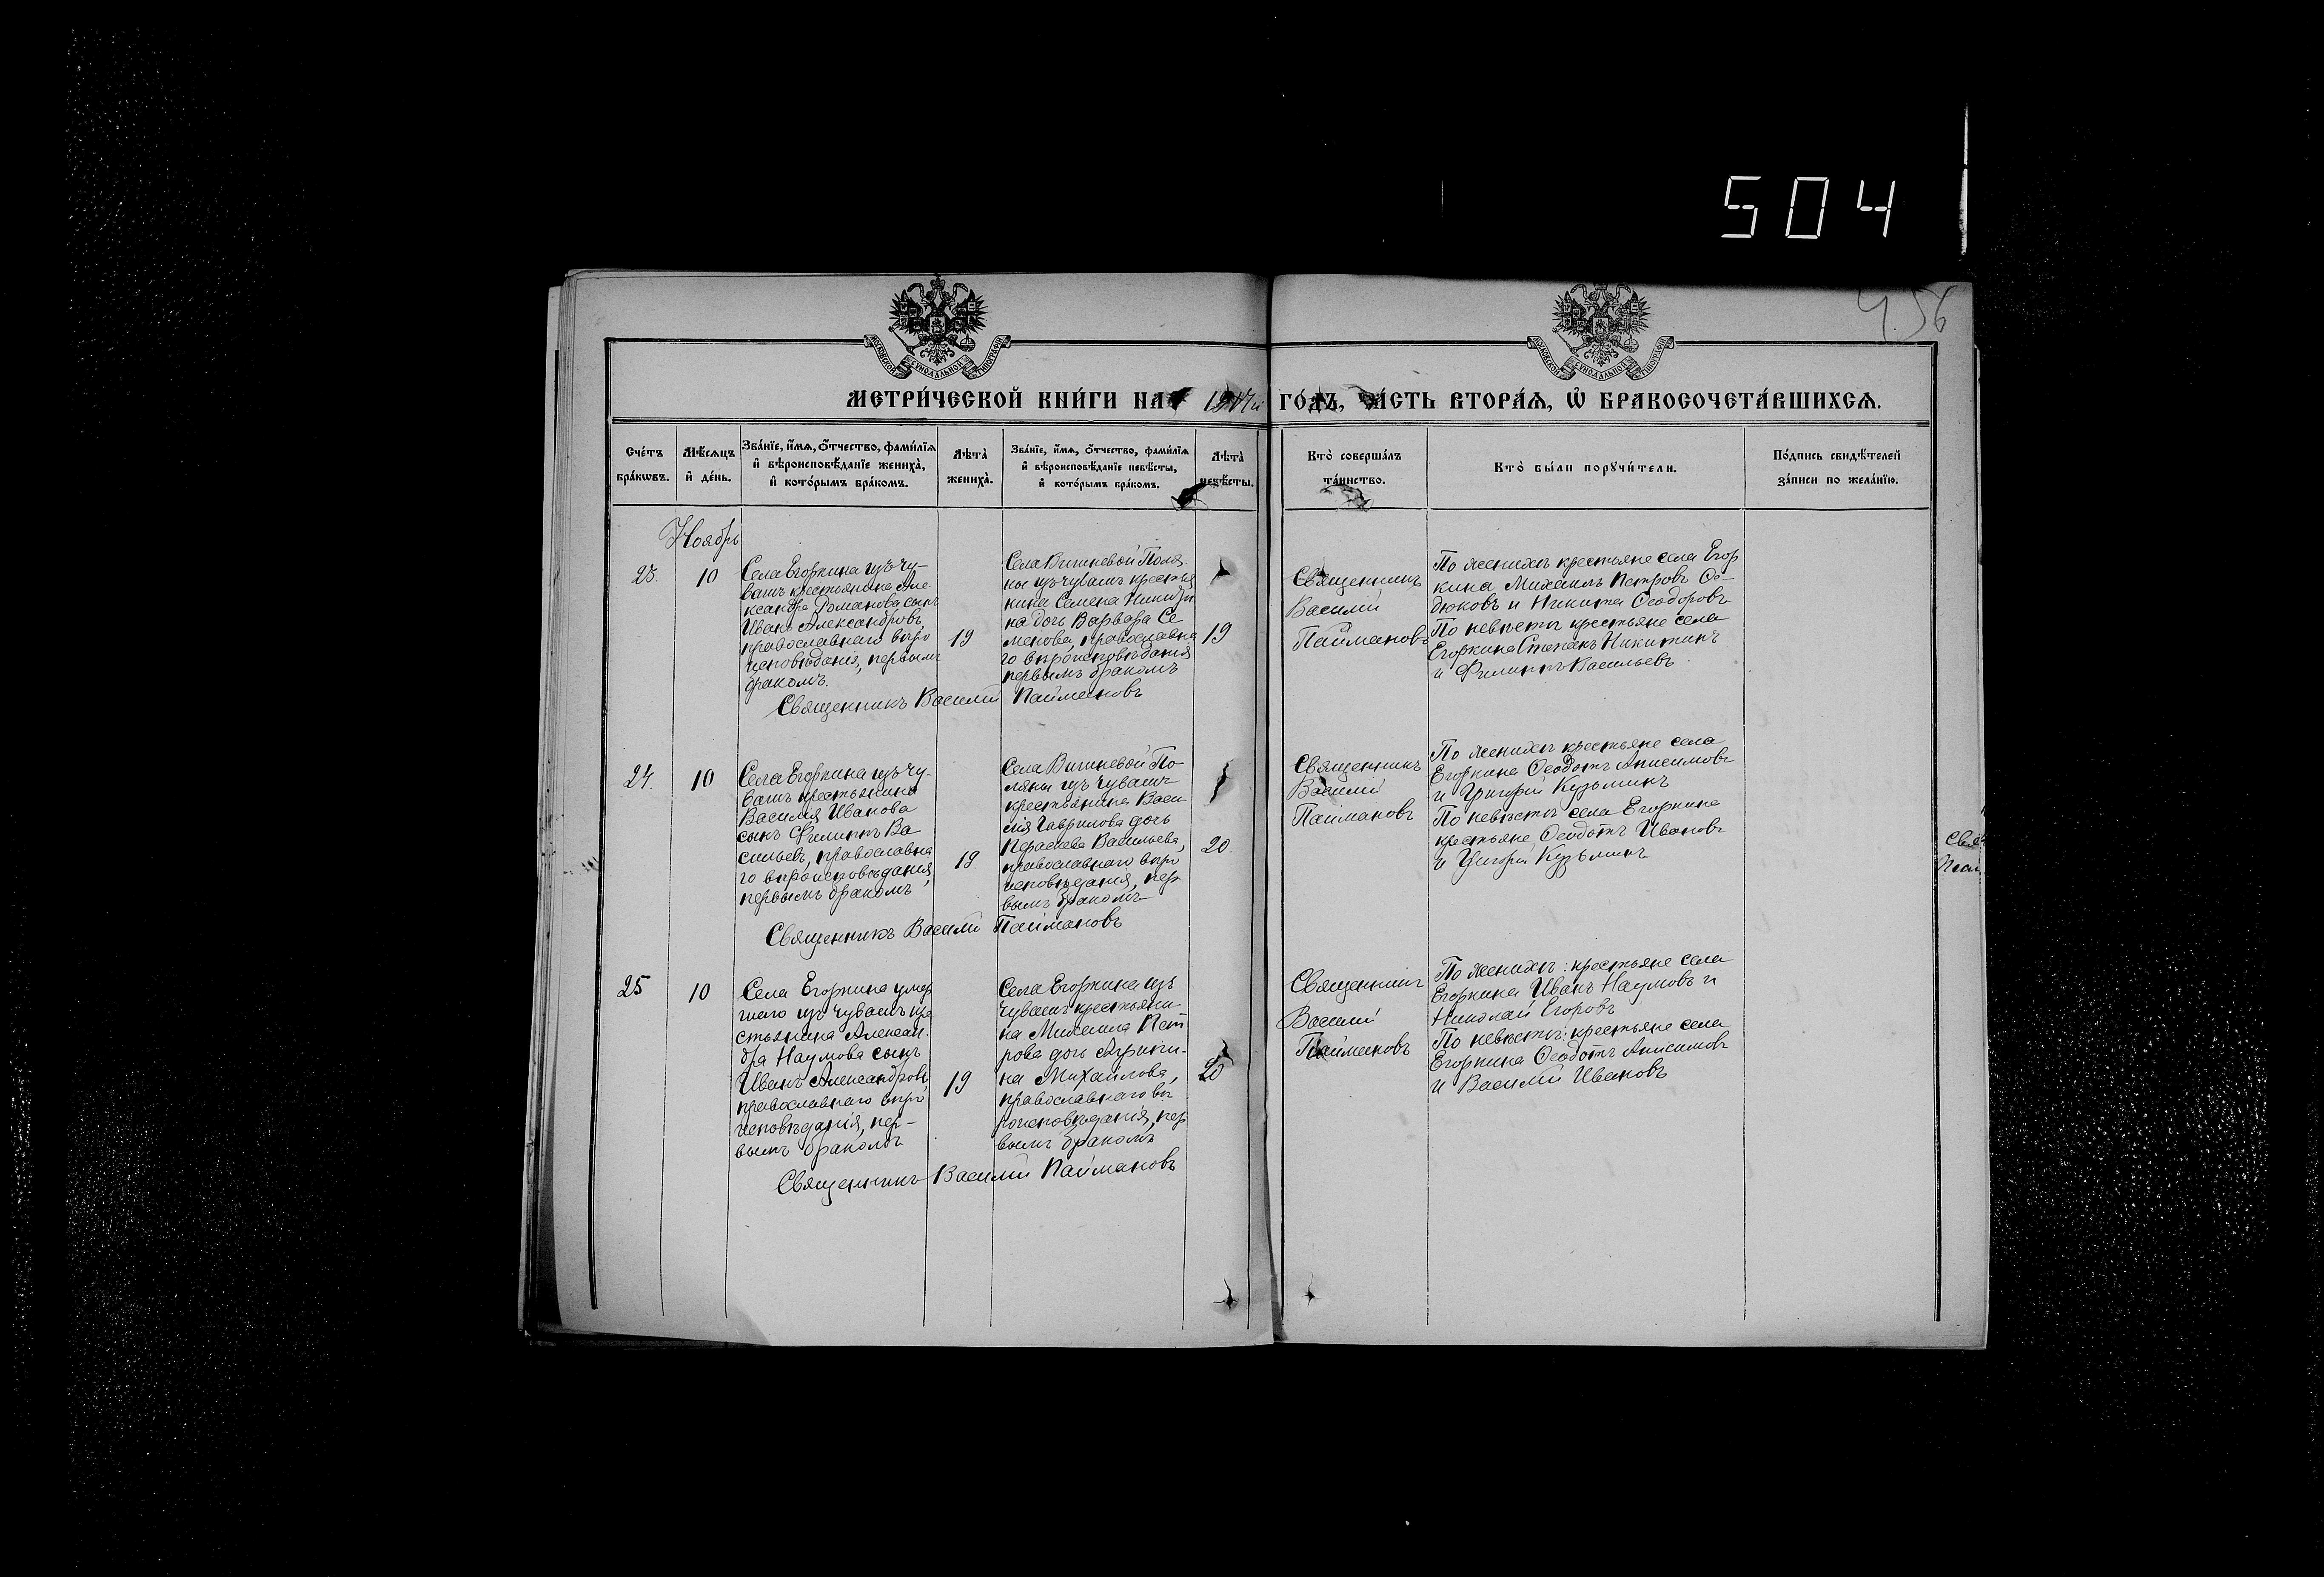 504
456
МОСКОВСКОЙ СУНОДАЛЬНОЙ ТИПОГРАФІИ
МОСКОВСКОЙ СУНОДАЛЬНОЙ ТИПОГРАФІИ
МЕТРИ́ЧЕСКОЙ КНИ́ГИ НА ГО́ДЪ, ЧА́СТЬ ВТОРА́Ѧ, Ѡ҆ БРАКОСОЧЕТА́ВШИХСѦ.
Сче́тъ бра́кѡвъ.
Мѣ́сѧцъ и҆ де́нь.
Зва́нїе, и҆́мѧ, ѻ҆́тчество, фами́лїѧ и҆ вѣроисповѣ́данїе жениха̀, и҆ кото́рымъ бра́комъ.
Лѣта̀ жениха̀.
Зва́нїе, и҆́мѧ, ѻ҆́тчество, фами́лїѧ и҆ вѣроисповѣ́данїе невѣ́сты, и҆ кото́рымъ бра́комъ.
Лѣта̀ невѣ́сты.
Кто̀ соверша́лъ та́инство.
Кто̀ бы́ли порꙋчи́тели.
По́дпись свидѣ́телей за́писи по жела́нїю.
Ноябрь
23.
10
Села Егоркина изъ чу-
вашъ крестьянина Але-
ксандра Романова сынъ
Иванъ Александровъ,
православнаго вѣро
исповѣданія, первымъ
бракомъ.
19
Села Вишневой Поля
ны изъ чувашъ крестья
нина Семена Никити
на дочь Варвара Се
менова, православна
го вѣроисповѣданія
первымъ бракомъ
19
Священникъ Василій Паймановъ
Священникъ
Василій
Паймановъ
По женихѣ крестьяне села Егор
кина Михаилъ Петровъ
дюковъ и Никита Ѳеодоровъ
По невѣстѣ крестьяне села
Егоркина Степанъ Никитинъ
и Филиппъ Васильевъ
24.
10
Села Егоркина изъ чу-
вашъ крестьянина
Василія Иванова
сынъ Филиппъ Ва
сильевъ, православна
го вѣроисповѣданія,
первымъ бракомъ
19.
Села Вишневой По-
ляны изъ чувашъ
крестьянина Васи-
лія Гаврилова дочь
Васильева,
православнаго вѣро
исповѣданія, пер
вымъ бракомъ
20.
Священникъ Василій Паймановъ
Священникъ
Василій
Паймановъ
По женихѣ крестьяне села
Егоркина Ѳеодотъ Анисимовъ
и Григорій Кузьминъ
По невѣстѣ села Егоркина
крестьяне Ѳеодотъ Ивановъ
и Григорій Кузьминъ
25
10
Села Егоркина умер
шаго изъ чувашъ кре
стьянина Алексан-
дра Наумова сынъ
Иванъ Александровъ,
православнаго вѣро
исповѣданія, пер-
вымъ бракомъ
19
Села Егоркина изъ
чувашъ крестьяни-
на Михаила Пет
рова дочь Агрипи-
на Михайлова,
православнаго вѣ
роисповѣданія, пер
вымъ бракомъ
20
Священникъ Василій Паймановъ
Священникъ
Василій
Паймановъ
По женихѣ: крестьяне села
Егоркина Иванъ Наумовъ и
Николай Егоровъ
По невѣстѣ: крестьяне села
Егоркина Ѳеодотъ Анисимовъ
и Василій Ивановъ